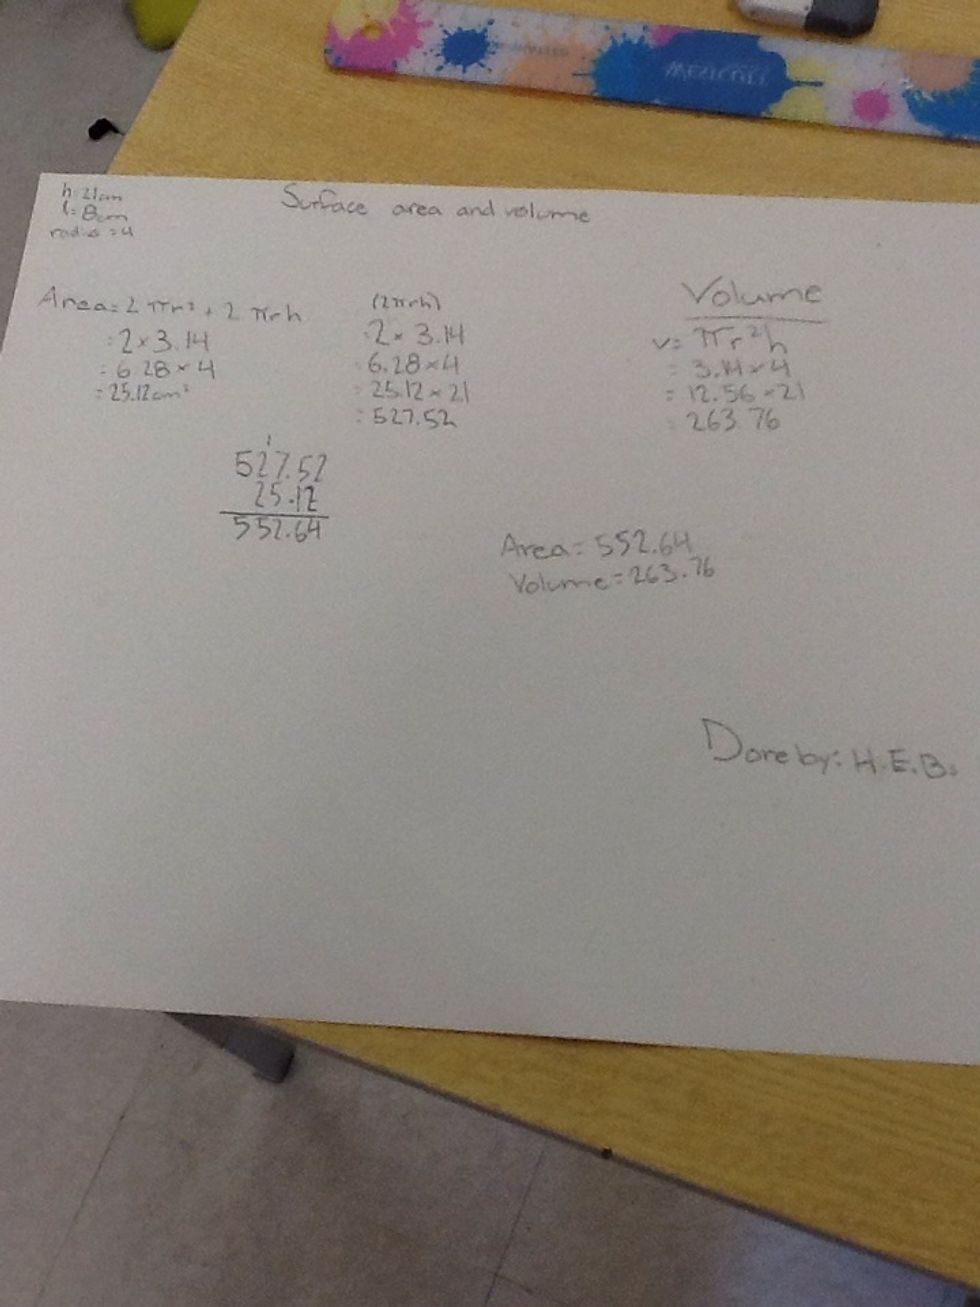 h=21cm
l=8cm
radius=4
Surface area and volume
Area=2πr²+2πrh
=2×3.14
=6.28×4
=25.12cm²
(2πrh)
=2×3.14
=6.28×4
=25.12×21
=527.52
Volume
v=πr²h
=3.14×4
=12.56×21
=263.76
1
527.52
25.12
552.64
Area=552.64
Volume=263.76
Done by: H.E.B.